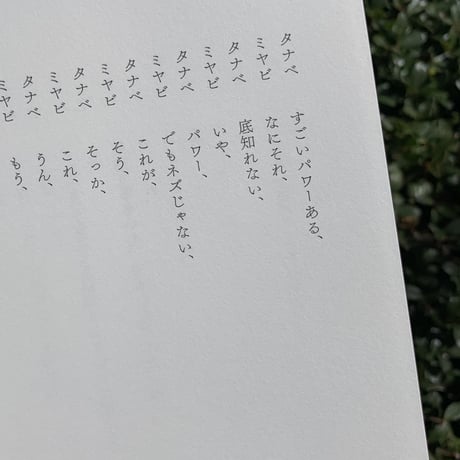 タナベ すごいパワーある、
ミヤビ なにそれ、
タナベ 底知れない、
ミヤビ いや、
タナベ パワー、
ミヤビ でもネズじゃない、
タナベ これが、
ミヤビ そう、
タナベ そっか、
ミヤビ これ、
タナベ うん、
ミヤビ もう、